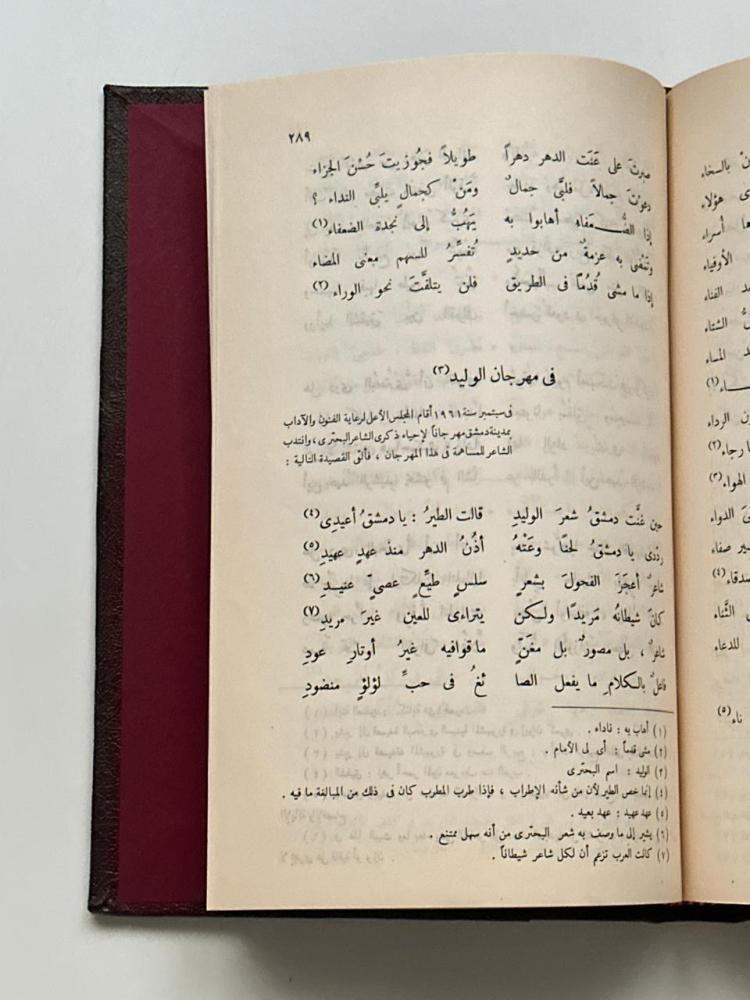 ٢٨٩
صبرتَ على عَنَت الدهر دهراً طويلاً فجُوزيتَ حُسْنَ الجزاء
دعوتَ جمالاً فلبَّى جمالٌ ومَنْ كجمالٍ يلبِّى النداء ؟
إذا الضُّعَفاء أهابوا به يَهُبُّ إلى نجدة الضعفاء(١)
وتمضى به عزمةٌ من حديدٍ تُفسِّرُ للسهم معنى المضاء
إذا ما مشى قُدُمًا فى الطريق فلن يتلفَّتَ نحو الوراء (٢)
فى مهرجان الوليد(٣)
فى سبتمبر سنة ١٩٦١ أقام المجلس الأعلى لرعاية الفنون والآداب
بمدينة دمشق مهرجاناً لإحياء ذكرى الشاعر البحترى ، وانتدب
الشاعر للمساهمة فى هذا المهرجان ، فألقى القصيدة التالية :
حين غنَّت دمشقُ شعرَ الوليدِ قالت الطيرُ : يا دمشقُ أعيدى(٤)
ردِّدى يا دمشقُ لحنًا وعَتْهُ أذُنُ الدهر منذ عهدٍ عهيدِ(٥)
شاعرٌ أعجَزَ الفحولَ بشعرٍ سلسٍ طيِّعٍ عصىٍّ عنيدِ(٦)
كانَ شيطانُه مَريدًا ولكن يتراءى للعين غيرَ مريدِ(٧)
شاعرٌ ، بل مصورٌ بل مغَنٍّ ما قوافيه غيرُ أوتارِ عودِ
فاعلٌ بالكلامِ ما يفعل الصا ئغُ فى حبِّ لؤلؤٍ منضودِ
(١) أهاب به : ناداه .
(٢) مشى قدماً : أى إلى الأمام .
(٣) الوليد : اسم البحترى
(٤) إنما خص الطير لأن من شأنه الإطراب ، فإذا طرب المطرب كان فى ذلك من المبالغة ما فيه .
(٥) عهد عهيد : عهد بعيد .
(٦) يشير إلى ما وصف به شعر البحترى من أنه سهل ممتنع .
(٧) كانت العرب تزعم أن لكل شاعر شيطاناً .
نْ بالسخاء
ى هؤلاء
ها أسراء
الأوفياء
د الفناء
الشتاء
المساء
ـاء(١)
ن الرداء
رجاء(٢)
الهواء(٣)
الدواء
ير صفاء
صدقاء(٤)
الثَّناء
للدعاء
ناء(٥)